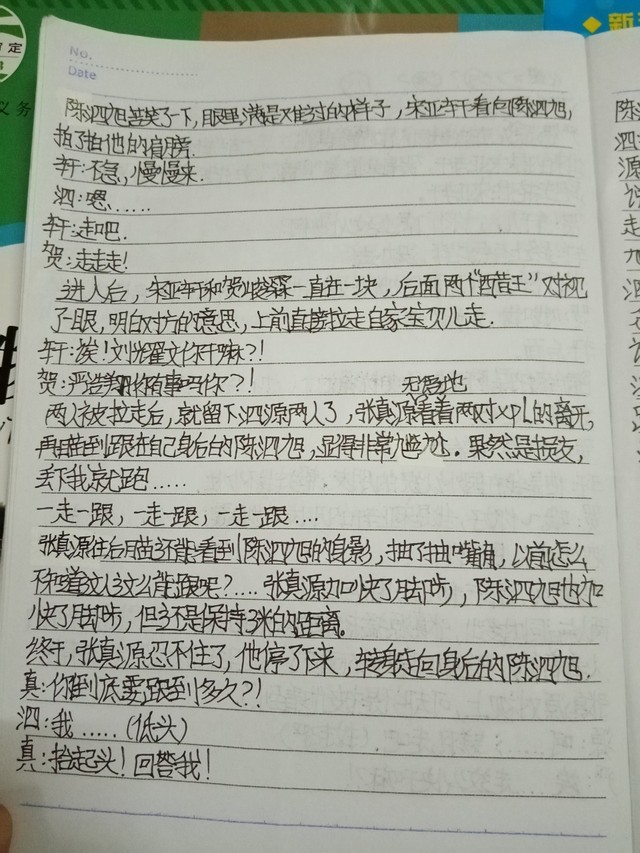 No.
Date
陈泗旭苦笑了一下,眼里满是难过的样子,宋亚轩看向陈泗旭,
拍了拍他的肩膀.
轩:不急,慢慢来.
泗:嗯……
轩:走吧.
贺:走走走!
进入后,宋亚轩和贺峻霖一直在一块,后面两个“醋王”对视
了一眼,明白对方的意思,上前直接拉走自家宝贝儿走.
轩:诶!刘耀文你干嘛?!
贺:严浩翔你有事吗你?!
两人被拉走后,就留下泗源两人了,张真源看着两对xpL的无爱地离开,
再瞄到跟在自己身后的陈泗旭,显得非常尴尬。果然是损友,
丢下我就跑……
一走一跟,一走一跟,一走一跟……
张真源往后瞄还能看到陈泗旭的身影,抽了抽嘴角,以前怎么
不知道这人这么能跟呢?….张真源加快了脚步,陈泗旭也加
快了脚步,但还是保持3米的距离。
终于,张真源忍不住了,他停了下来,转身走向身后的陈泗旭.
真:你到底要跟到多久?!
泗:我……(低头)
真:抬起头!回答我!
定
义务
新
陈
泗
源
走